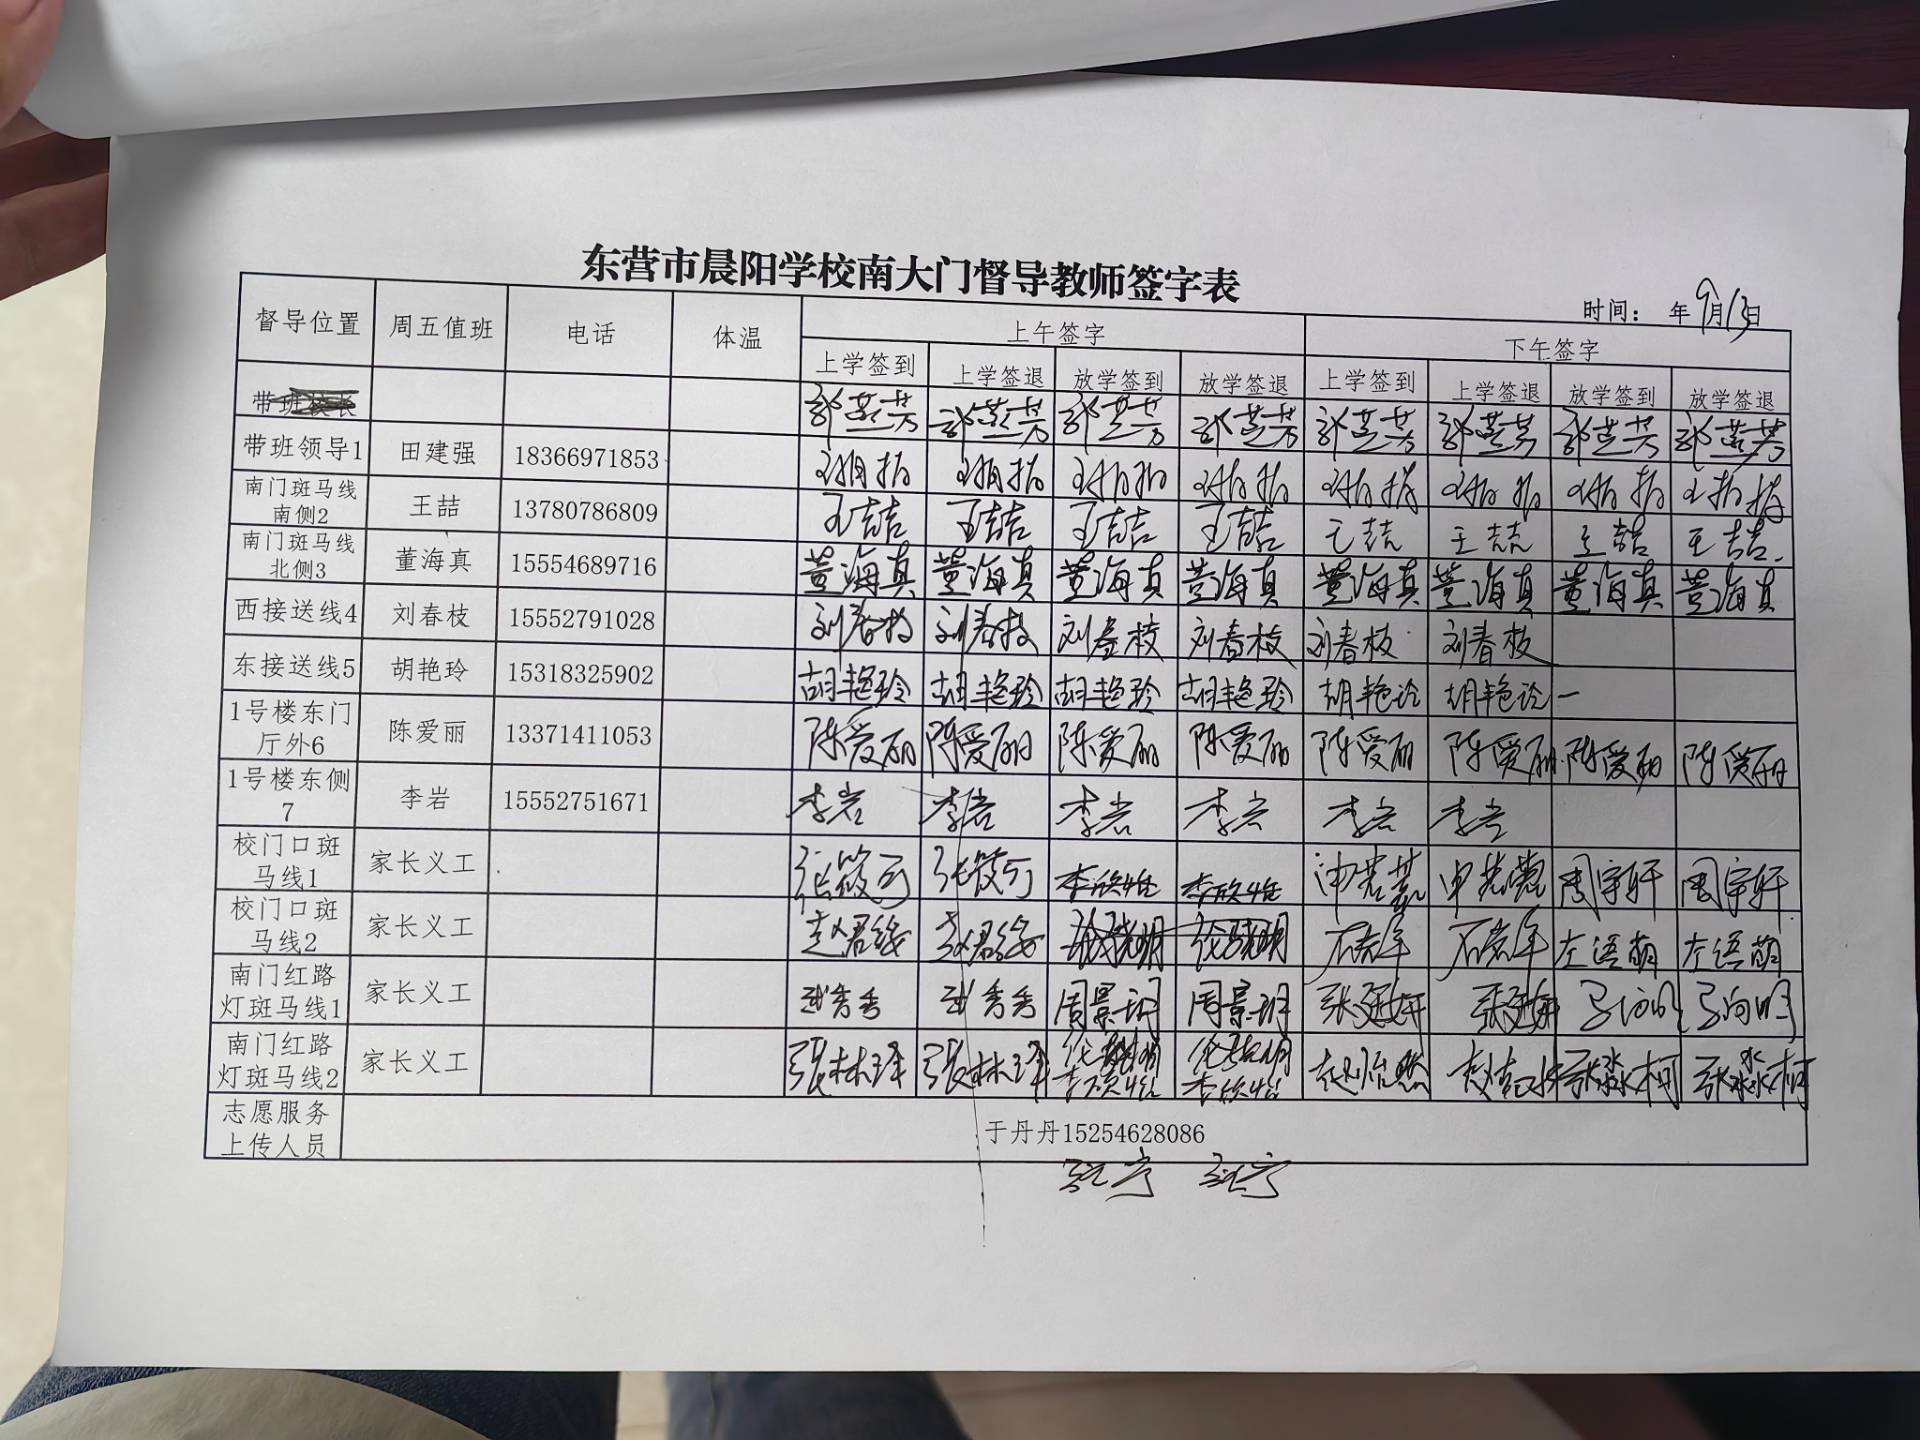 东营市晨阳学校南大门督导教师签字表
时间： 年9月13日
督导位置 周五值班 电话 体温 上午签字 下午签字
上学签到 上学签退 放学签到 放学签退 上学签到 上学签退 放学签到 放学签退
带班校长
带班领导1 田建强 18366971853
南门斑马线南侧2 王喆 13780786809 王喆 王喆 王喆 王喆 王喆 王喆 王喆 王喆
南门斑马线北侧3 董海真 15554689716 董海真 董海真 董海真 董海真 董海真 董海真 董海真 董海真
西接送线4 刘春枝 15552791028 刘春枝 刘春枝 刘春枝 刘春枝 刘春枝 刘春枝
东接送线5 胡艳玲 15318325902 胡艳玲 胡艳玲 胡艳玲 胡艳玲 胡艳玲 胡艳玲
1号楼东门厅外6 陈爱丽 13371411053 陈爱丽 陈爱丽 陈爱丽 陈爱丽 陈爱丽 陈爱丽 陈爱丽 陈爱丽
1号楼东侧7 李岩 15552751671 李岩 李岩 李岩 李岩 李岩 李岩
校门口斑马线1 家长义工 张筱可 张筱可 李欣怡 李欣怡 周宇轩 周宇轩
校门口斑马线2 家长义工 左语萌 左语萌
南门红路灯斑马线1 家长义工 武秀秀 武秀秀 周景玥 周景玥
南门红路灯斑马线2 家长义工 張林泽 張林泽 李欣怡 李欣怡 赵怡然 张淼柯 张淼柯
志愿服务上传人员 于丹丹15254628086